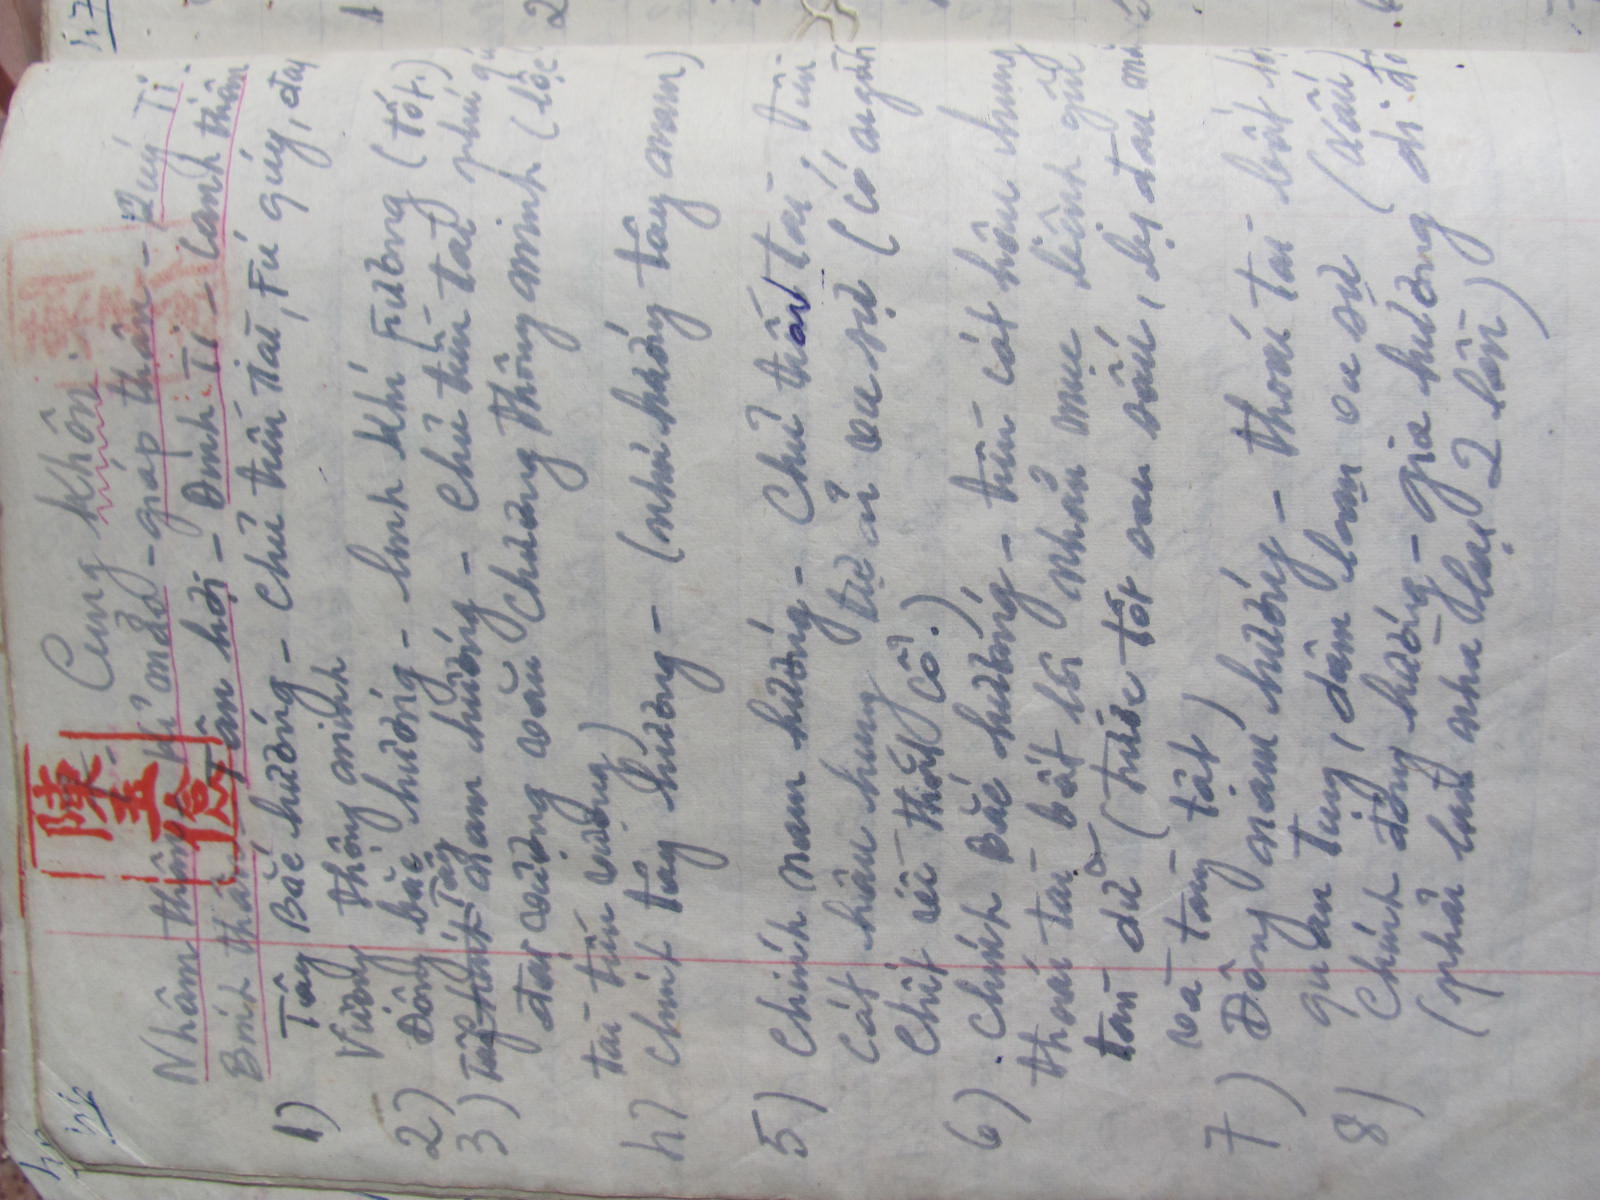 Cung Khôn
陳孟儉
Nhâm thân kỉ mão - giáp thân - Quý Tỉ.
Bính thân - Tân hợi - Đinh Tỉ - Canh thân
1) Tây Bắc hướng - Chủ tiền Tài, Fú quý, đầy
Vượng thông minh
2) Đông bắc hướng - linh khí Fương (tốt)
3) Tây nam hướng - Chủ tiền tài phú
đại cường văn chương Thông minh (lộc
tài tiến vượng)
4) Chính tây hướng - (như hướng tây nam)
5) Chính nam hướng - Chủ thoái tài - tiền
cát hậu hung tự ải ưu sự (có người
chết vì thắt cổ.)
6) Chính Bắc hướng - tiền cát hậu hung
thoái tài bất lợi nhãn mục bệnh
tán dư (trước tốt sau xấu, bị đau mắt
và tàng tật)
7) Đông nam hướng - thoái tài - bất
quan tụng, dâm loạn ưu sự (xấu)
8) Chính đông hướng - gia hương di đổ
(phải làm nhà lại 2 lần)